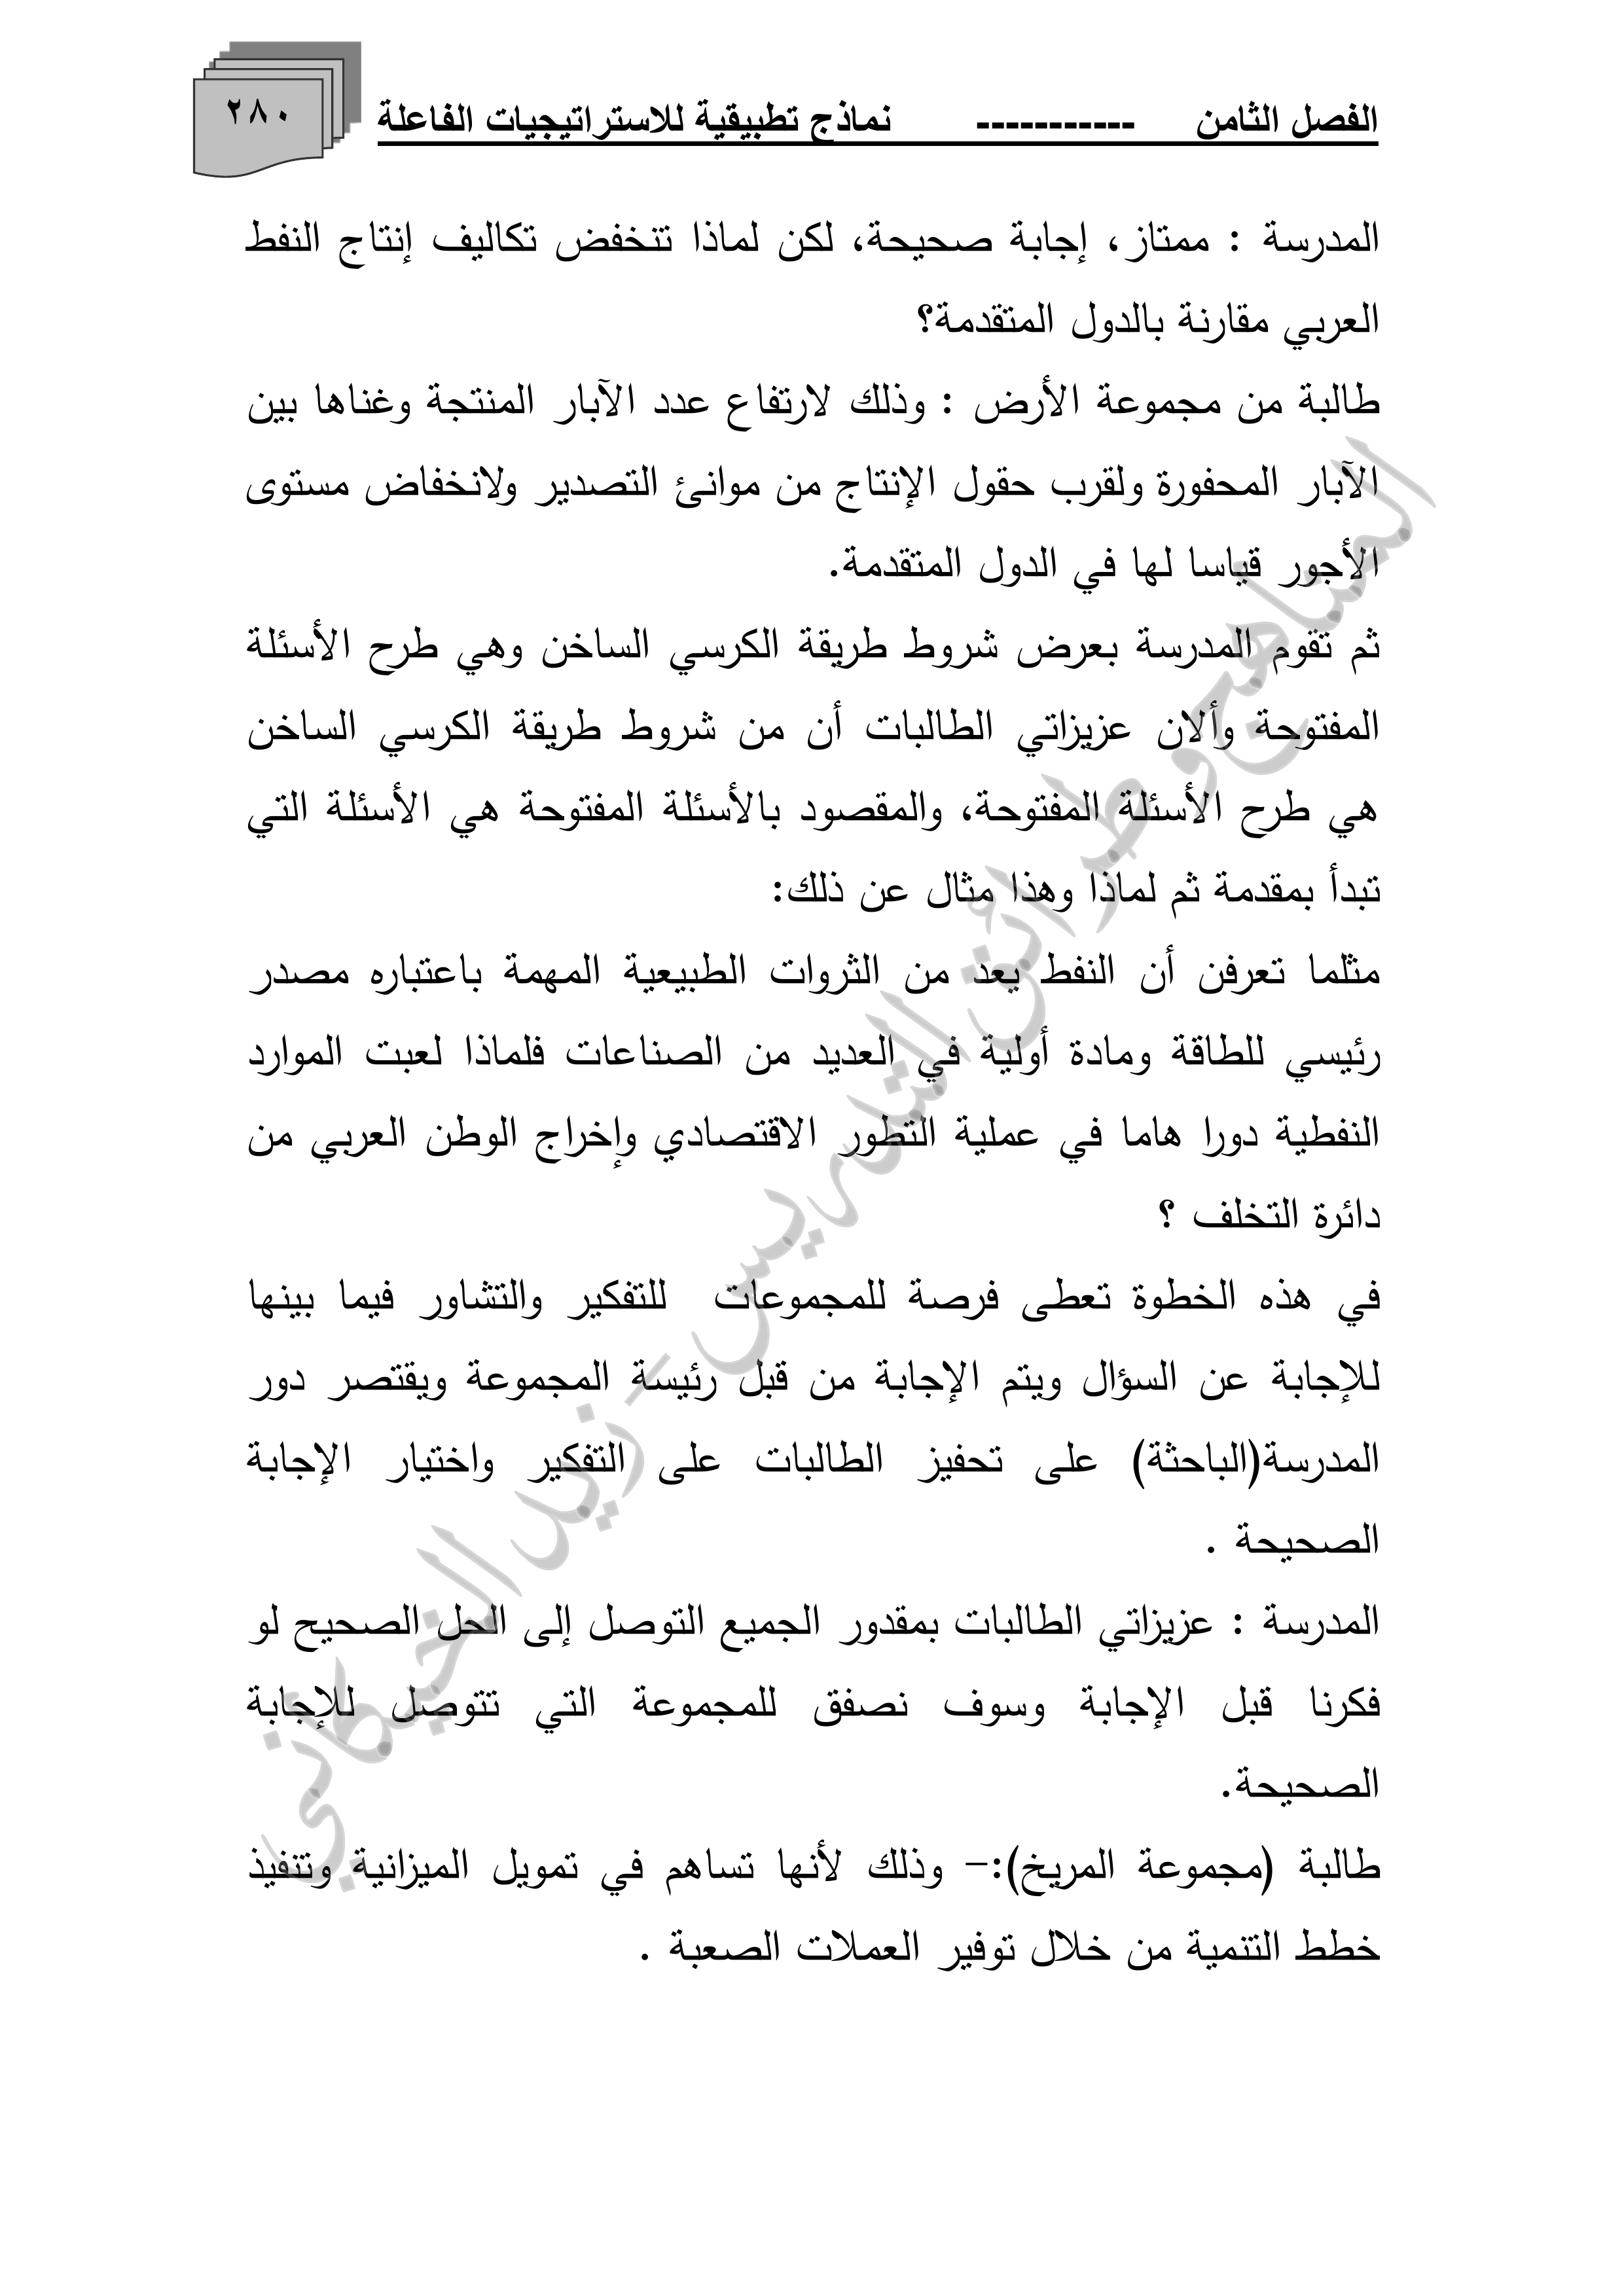 الفصل الثامن ----------- نماذج تطبيقية للاستراتيجيات الفاعلة
٢٨٠
المدرسة : ممتاز، إجابة صحيحة، لكن لماذا تنخفض تكاليف إنتاج النفط
العربي مقارنة بالدول المتقدمة؟
طالبة من مجموعة الأرض : وذلك لارتفاع عدد الآبار المنتجة وغناها بين
الآبار المحفورة ولقرب حقول الإنتاج من موانئ التصدير ولانخفاض مستوى
الأجور قياسا لها في الدول المتقدمة.
ثم تقوم المدرسة بعرض شروط طريقة الكرسي الساخن وهي طرح الأسئلة
المفتوحة وألان عزيزاتي الطالبات أن من شروط طريقة الكرسي الساخن
هي طرح الأسئلة المفتوحة، والمقصود بالأسئلة المفتوحة هي الأسئلة التي
تبدأ بمقدمة ثم لماذا وهذا مثال عن ذلك:
مثلما تعرفن أن النفط يعد من الثروات الطبيعية المهمة باعتباره مصدر
رئيسي للطاقة ومادة أولية في العديد من الصناعات فلماذا لعبت الموارد
النفطية دورا هاما في عملية التطور الاقتصادي وإخراج الوطن العربي من
دائرة التخلف ؟
في هذه الخطوة تعطى فرصة للمجموعات للتفكير والتشاور فيما بينها
للإجابة عن السؤال ويتم الإجابة من قبل رئيسة المجموعة ويقتصر دور
المدرسة(الباحثة) على تحفيز الطالبات على التفكير واختيار الإجابة
الصحيحة .
المدرسة : عزيزاتي الطالبات بمقدور الجميع التوصل إلى الحل الصحيح لو
فكرنا قبل الإجابة وسوف نصفق للمجموعة التي تتوصل للإجابة
الصحيحة.
طالبة (مجموعة المريخ):- وذلك لأنها تساهم في تمويل الميزانية وتنفيذ
خطط التنمية من خلال توفير العملات الصعبة .
المناهج وطرائق التدريس - زيد الخيكاني